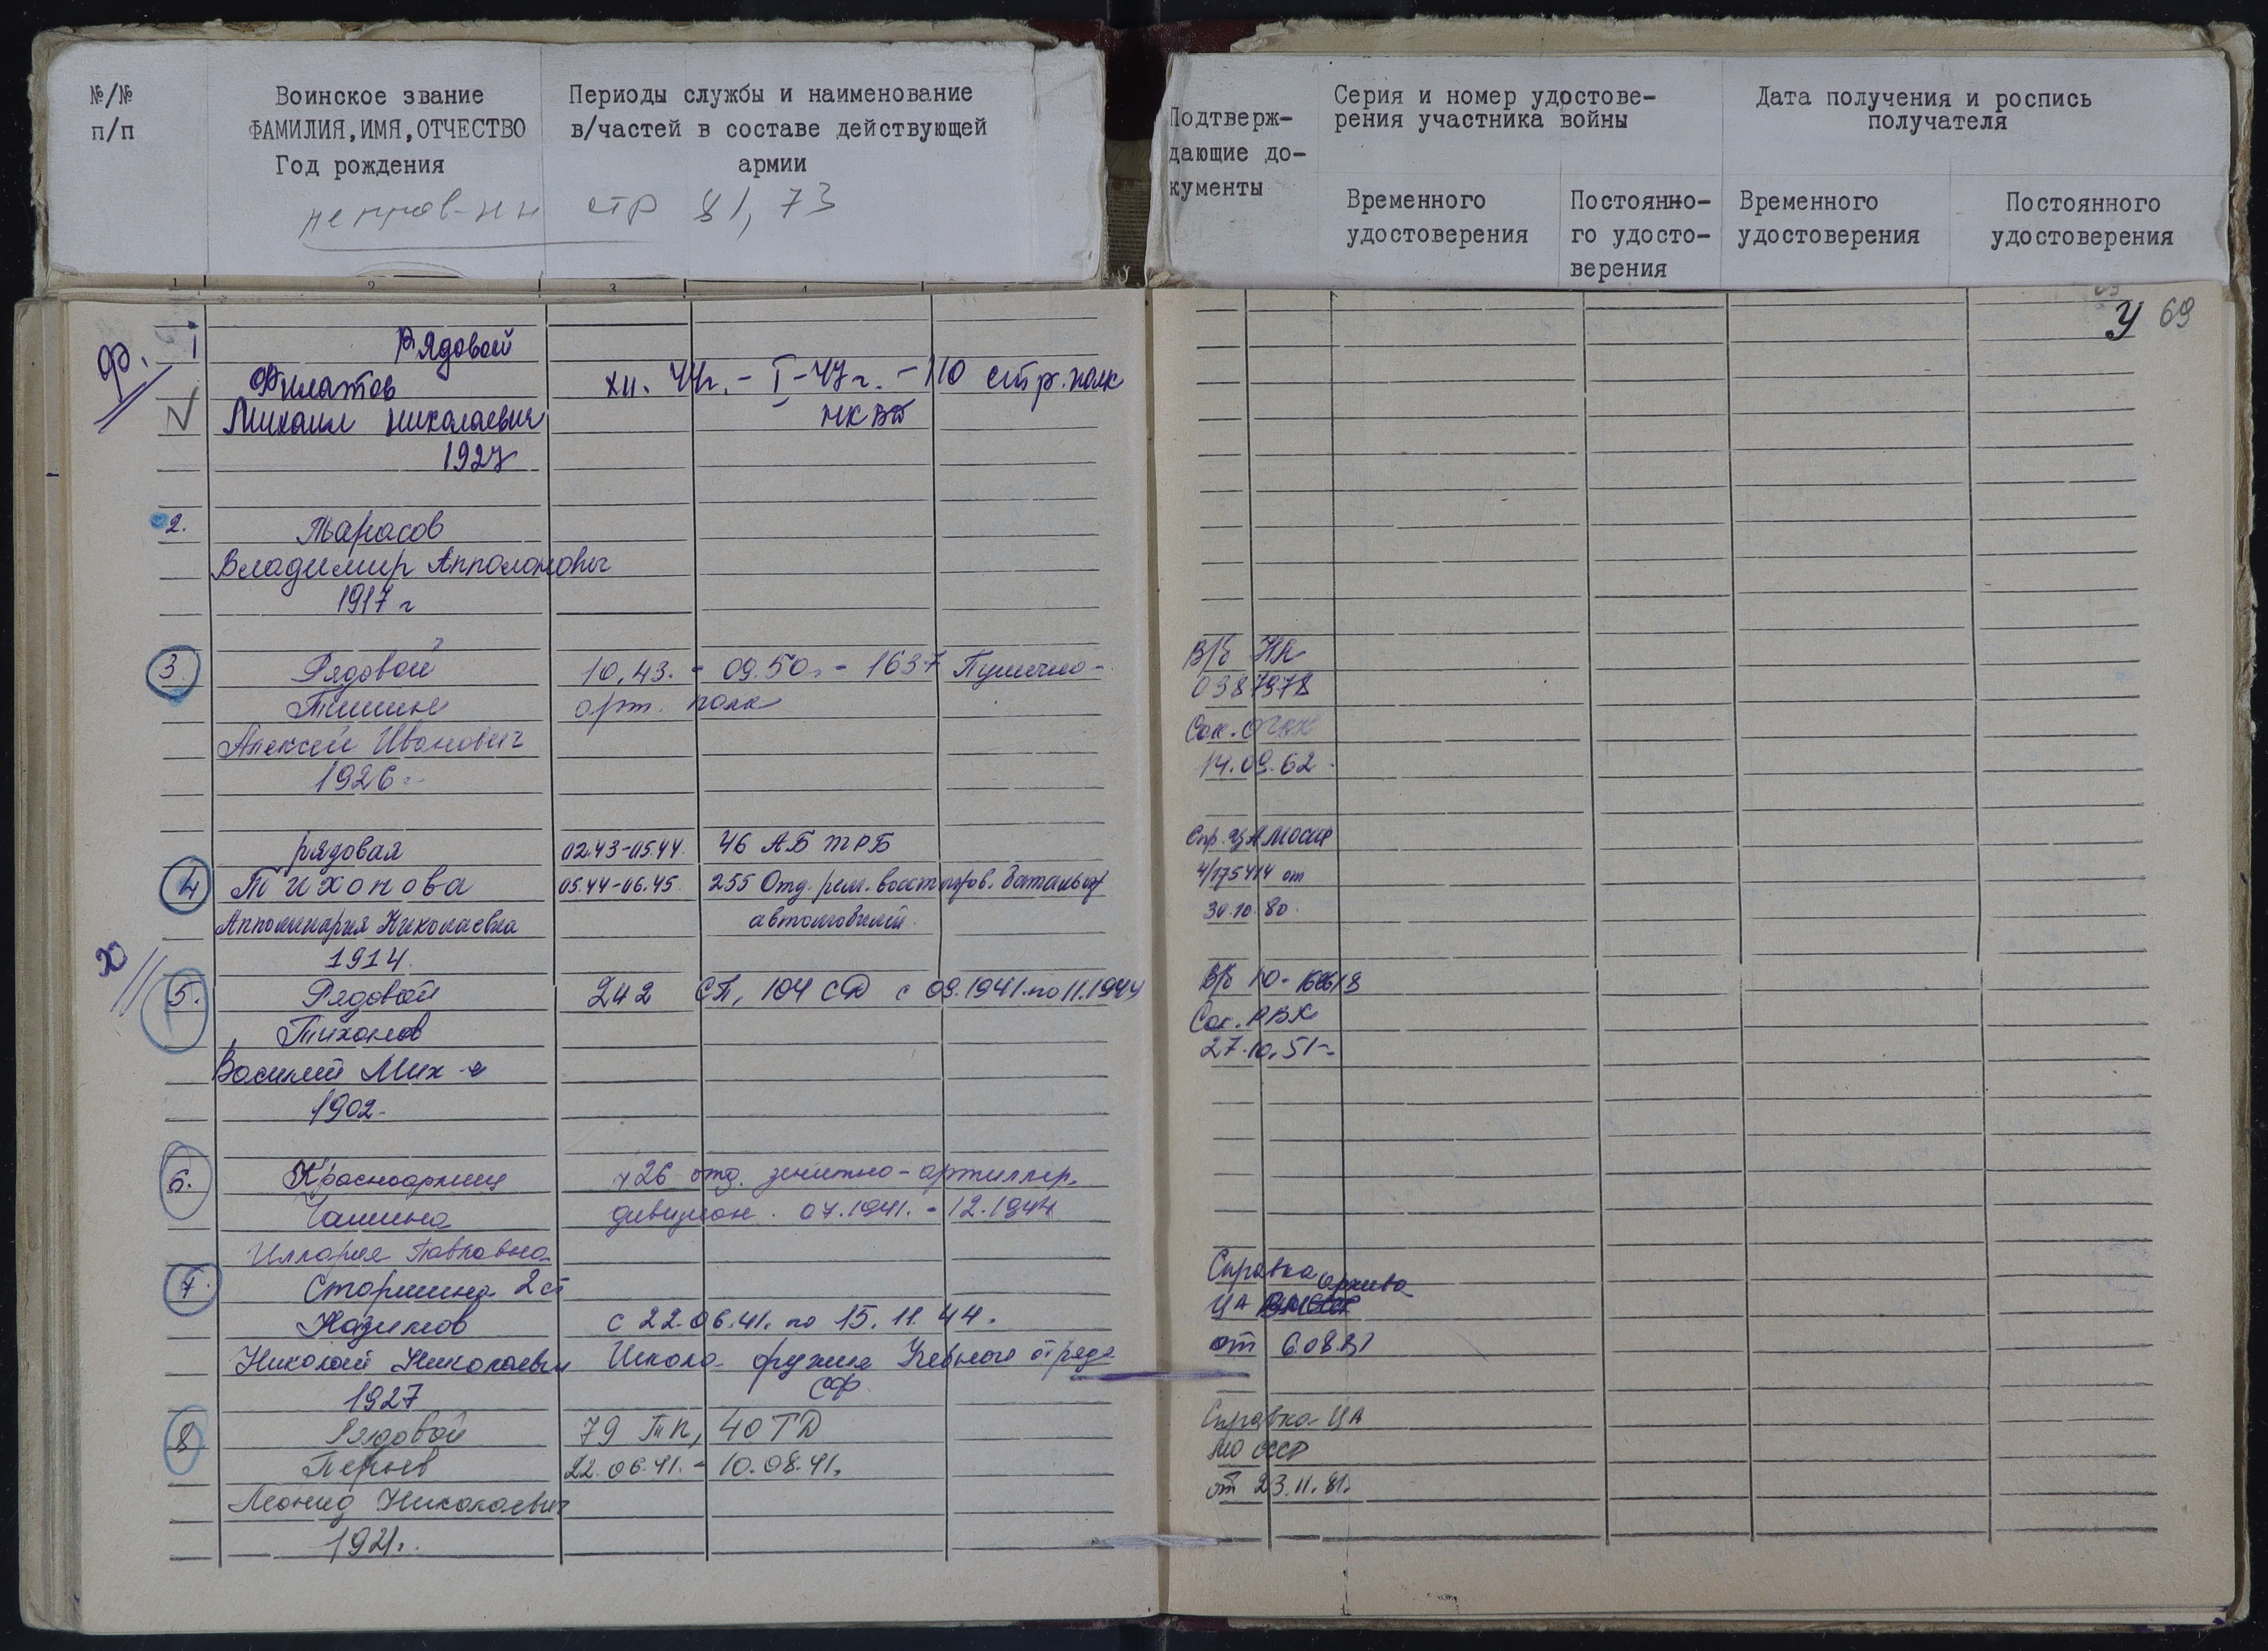 №/№
п/п
Воинское звание
ФАМИЛИЯ,ИМЯ,ОТЧЕСТВО
Год рождения
Периоды службы и наименование
в/частей в составе действующей
армии
стр 81, 73
Подтверж-
дающие до-
кументы
Серия и номер удостове-
рения участника войны
Временного
удостоверения
Постоянно-
го удосто-
верения
Дата получения и роспись
получателя
Временного
удостоверения
Постоянного
удостоверения
1 2 3 4
У 69
Ф. I Рядовой
Филатов XII. 44г. - I-47г. - 110 стр. полк
Михаил Николаевич НКВД
1927
2. Тарасов
Владимир Апполонович
1917 г
3. Рядовой 10.43. - 09.50г. - 1637 Пушечно-
Тишин арт. полк
Алексей Иванович
1926г.
В/б НА
0387978
Сок. ОГВК
14.09.62
рядовая 02.43-05.44. 46 АБ ТРБ
4 Тихонова 05.44-06.45. 255 Отд. рем. восстанов. батальон
Апполинария Николаевна автомобилей.
1914.
Спр. ЦАМО СССР
4/175414 от
30.10.80.
Х
5. Рядовой 242 СП, 104 СД с 09.1941. по 11.1944
Тихонов
Василий Мих-ч
1902.
В/б Ю-
Сок. РВК
27.10.51г.
6. Красноармеец 426 отд. зенитно-артиллер.
Чашина дивизион. 07.1941. - 12.1944
Иллария Павловна
7. Старшина 2 ст
Назимов с 22.06.41. по 15.11.44.
Николай Николаевич Школа оружия Учебного отряда
1927 СФ
Справка архива
ЦА
от 6.08.81
8 Рядовой 79 тп, 40 ТД
Перьев 22.06.41. - 10.08.41.
Леонид Николаевич
1921г.
Справка ЦА
МО СССР
от 23.11.81.